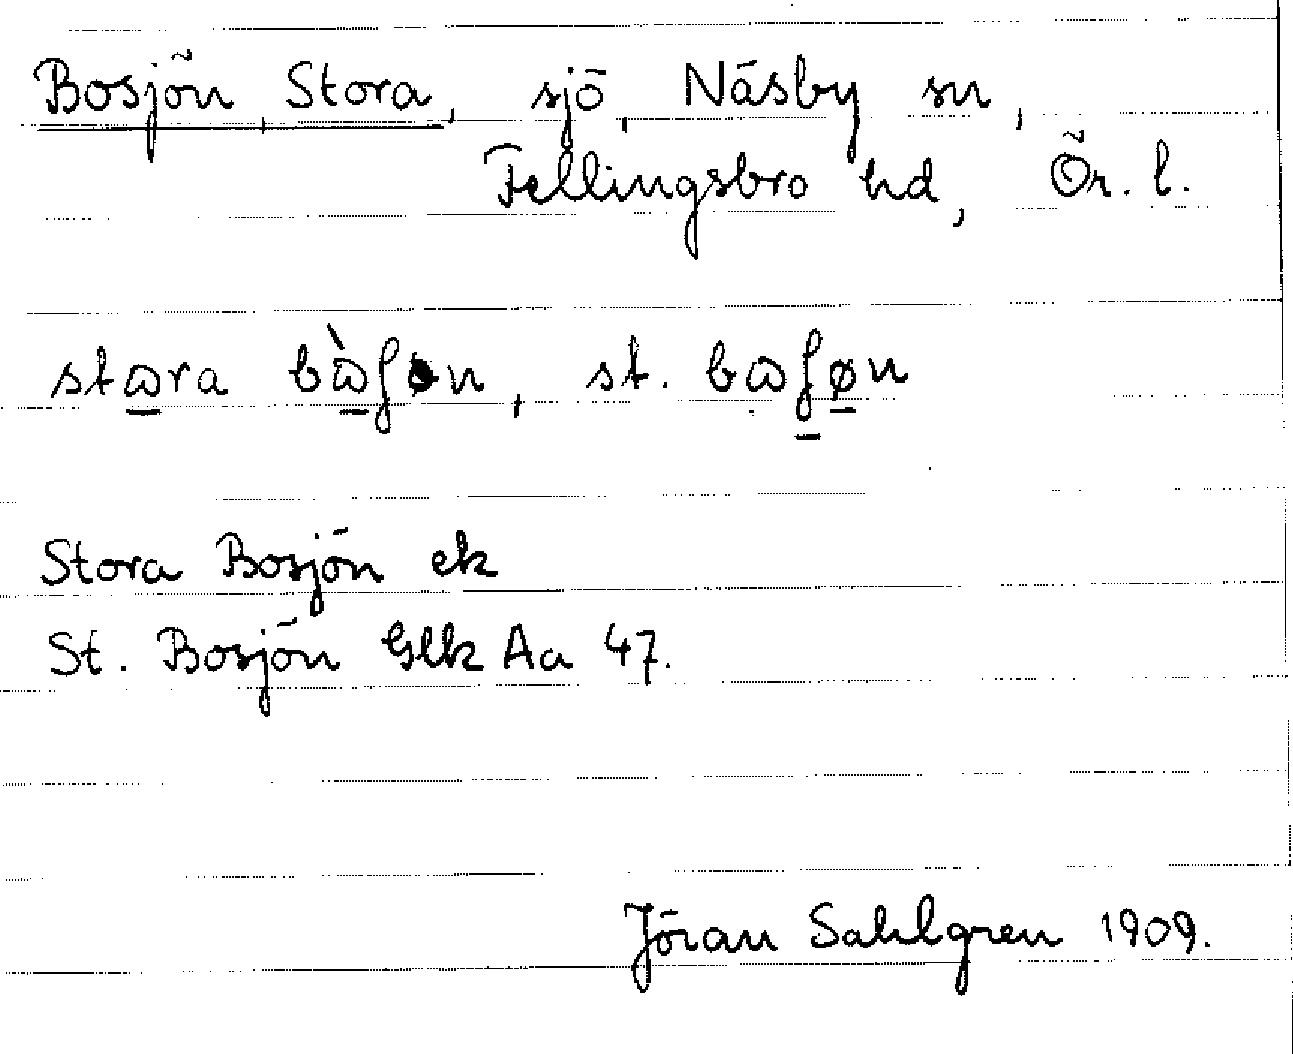 Bosjön, Stora, sjö, Näsby sn,
Fellingsbro hd, Ör. l.
stɷra bɷ̀ʃøn, st. bɷʃøn
Stora Bosjön ek
St. Bosjön Glk Aa 47.
Jöran Sahlgren 1909.